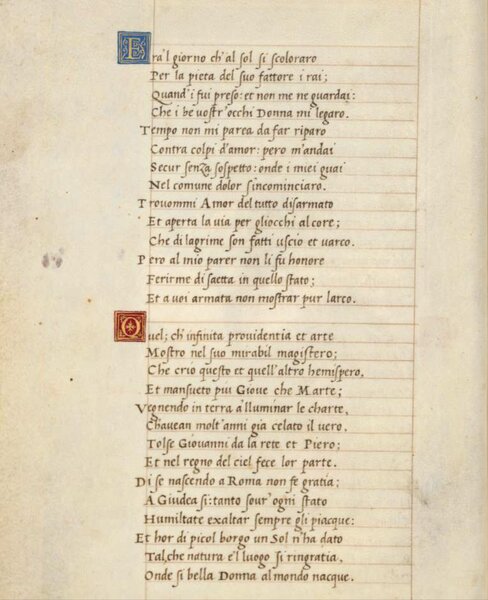 Era'l giorno ch'al sol si scoloraro
Per la pieta del suo fattore i rai;
Quand'i fui preso: et non me ne guardai:
Che i be vostr'occhi Donna mi legaro.
Tempo non mi parea da far riparo
Contra colpi d'amor: pero m'andai
Secur senza sospetto: onde i miei guai
Nel comune dolor sincominciaro.
Trovommi Amor del tutto disarmato
Et aperta la via per gliocchi al core;
Che di lagrime son fatti uscio et varco.
Pero al mio parer non li fu honore
Ferirme di saetta in quello stato;
Et a voi armata non mostrar pur larco.
Quel; ch'infinita providentia et arte
Mostro nel suo mirabil magistero;
Che crio questo et quell'altro hemispero,
Et mansueto piu Giove che Marte;
Vegnendo in terra a'lluminar le charte,
Ch'avean molt'anni gia celato il vero.
Tolse Giovanni da la rete et Piero;
Et nel regno del ciel fece lor parte.
Di se nascendo a Roma non fe gratia;
A Giudea si: tanto sour'ogni stato
Humiltate exaltar sempre gli piacque:
Et hor di picol borgo un Sol n'ha dato
Tal, che natura e'l luogo si ringratia,
Onde si bella Donna al mondo nacque.